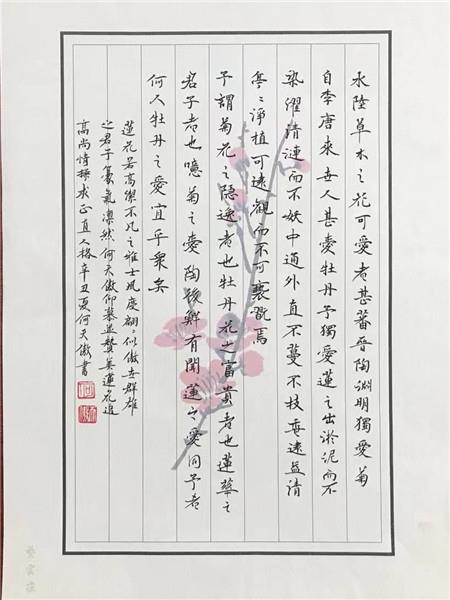 水陸草木之花可愛者甚蕃晉陶淵明獨愛菊
自李唐來世人甚愛牡丹予獨愛蓮之出淤泥而不
染濯清漣而不妖中通外直不蔓不枝香遠益清
亭〻淨植可遠觀而不可褻翫焉
予謂菊花之隱逸者也牡丹花之富貴者也蓮華之
君子者也噫菊之愛陶後鮮有聞蓮之愛同予者
何人牡丹之愛宜乎衆矣
蓮花若高潔不凡之雅士風度翩〻似傲世群雄
之君子豪氣凜然何天傲仰慕並贊美蓮花追
高尚情操求正直人格辛丑夏何天傲書